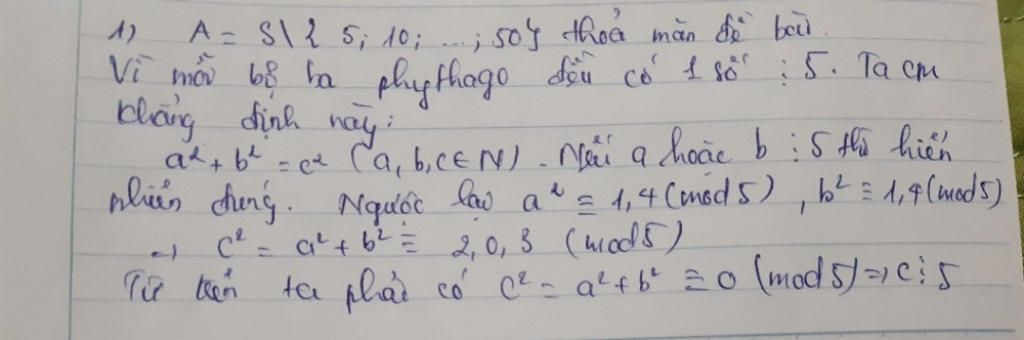 1) A = S\{ 5; 10; ...; 50} thoả mãn đề bài.
Vì mỗi bộ ba phythago đều có 1 số ⋮ 5. Ta cm
khẳng định này:
a² + b² = c² (a, b, c ∈ N). Nếu a hoặc b ⋮ 5 thì hiển
nhiên đúng. Ngược lại a² ≡ 1,4 (mod 5), b² ≡ 1,4 (mod 5)
→ c² = a² + b² ≡ 2, 0, 3 (mod 5)
Từ trên ta phải có c² = a² + b² ≡ 0 (mod 5) ⇒ c ⋮ 5